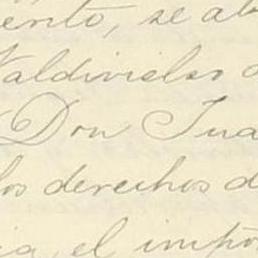 ento, se ab
Valdivielso d
Don Jua
los derechos d
ia, el impo